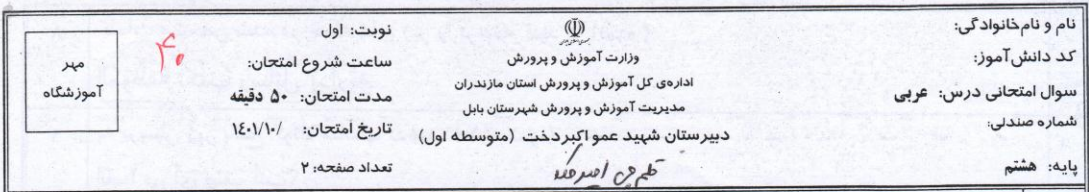 نام و نام‌خانوادگی:
کد دانش‌آموز:
سوال امتحانی درس: عربی
شماره صندلی:
پایه: هشتم
وزارت آموزش و پرورش
اداره‌ی کل آموزش و پرورش استان مازندران
مدیریت آموزش و پرورش شهرستان بابل
دبیرستان شهید عمو اکبردخت (متوسطه اول)
نوبت: اول
ساعت شروع امتحان:
مدت امتحان: ۵۰ دقیقه
تاریخ امتحان: /۱٤۰۱/۱۰
تعداد صفحه: ۲
مهر
آموزشگاه